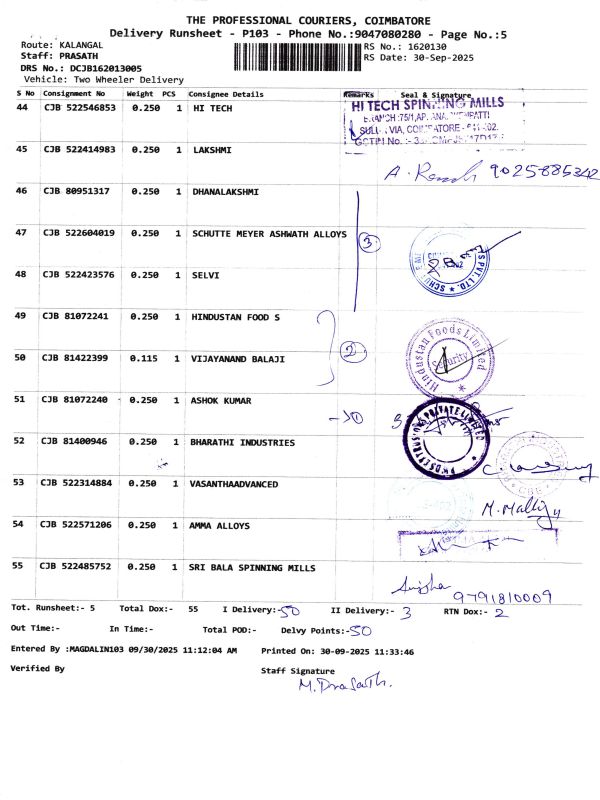 THE PROFESSIONAL COURIERS, COIMBATORE
Delivery Runsheet - P103 - Phone No.:9047080280 - Page No.:5
Route: KALANGAL
Staff: PRASATH
DRS No.: DCJB162013005
Vehicle: Two Wheeler Delivery
RS No.: 1620130
RS Date: 30-Sep-2025
S No Consignment No Weight PCS Consignee Details Remarks Seal & Signature
44 CJB 522546853 0.250 1 HI TECH
HI TECH SPINNING MILLS
45 CJB 522414983 0.250 1 LAKSHMI
A. 9025885342
46 CJB 80951317 0.250 1 DHANALAKSHMI
47 CJB 522604019 0.250 1 SCHUTTE MEYER ASHWATH ALLOYS
3
48 CJB 522423576 0.250 1 SELVI
49 CJB 81072241 0.250 1 HINDUSTAN FOOD S
50 CJB 81422399 0.115 1 VIJAYANAND BALAJI
2
Hindustan Foods Limited
Security
51 CJB 81072240 0.250 1 ASHOK KUMAR
1
PRIVATE LIMITED
52 CJB 81400946 0.250 1 BHARATHI INDUSTRIES
53 CJB 522314884 0.250 1 VASANTHAADVANCED
M. Mally
54 CJB 522571206 0.250 1 AMMA ALLOYS
55 CJB 522485752 0.250 1 SRI BALA SPINNING MILLS
9791810009
Tot. Runsheet:- 5 Total Dox:- 55 I Delivery:- 50 II Delivery:- 3 RTN Dox:- 2
Out Time:- In Time:- Total POD:- Delvy Points:- 50
Entered By :MAGDALIN103 09/30/2025 11:12:04 AM Printed On: 30-09-2025 11:33:46
Verified By Staff Signature
M. Prasath.